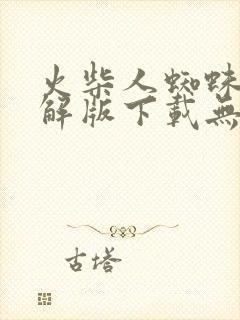 火柴人蜘蛛
解版下載無
古塔